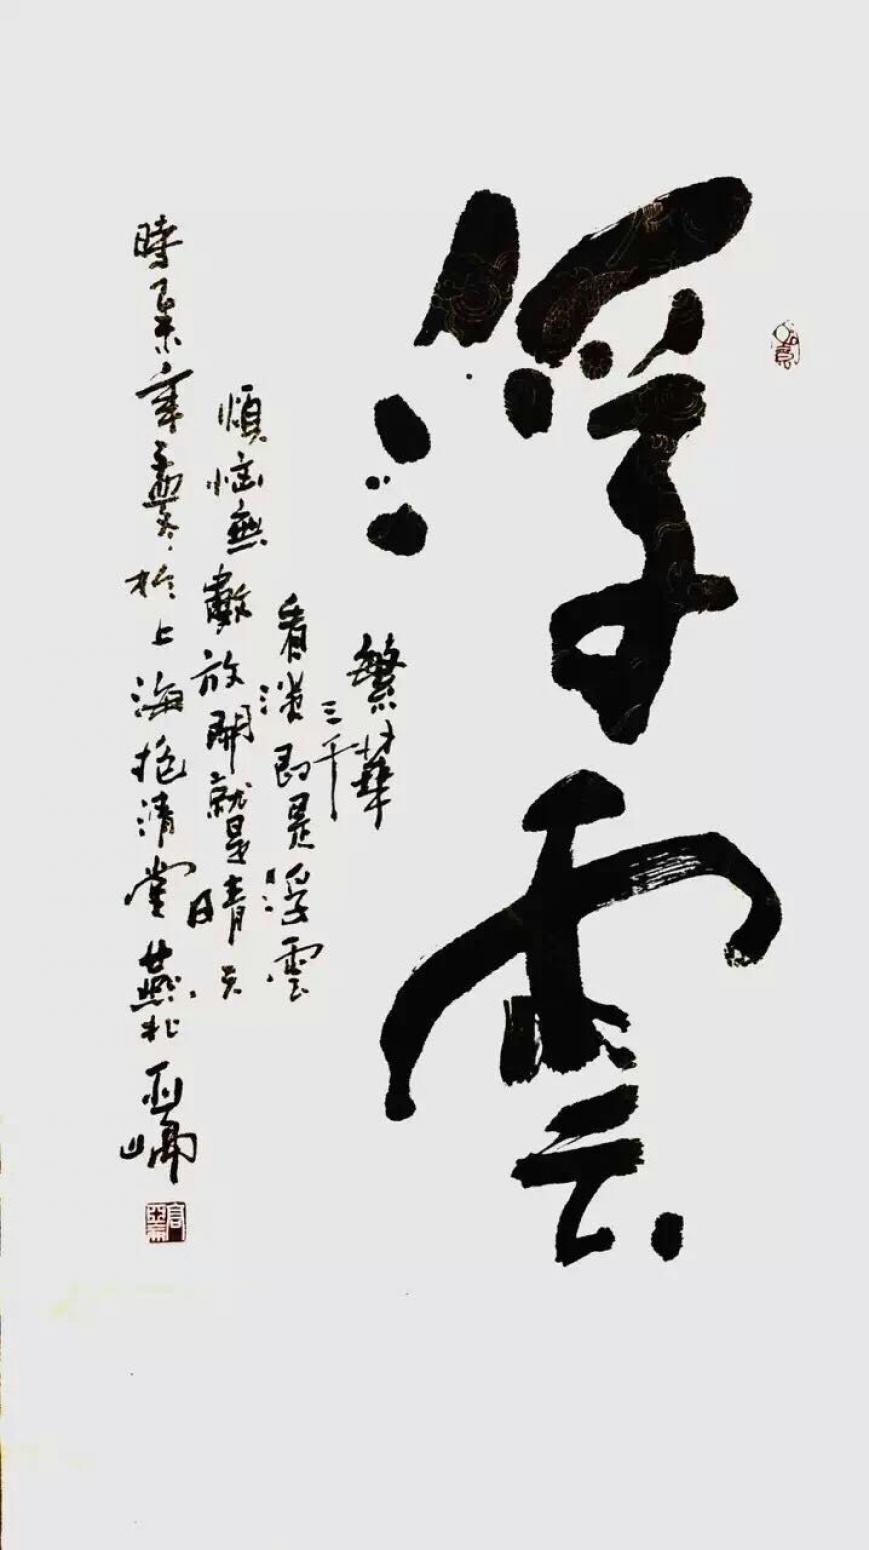 浮雲
繁華
三千
看淡即是浮雲
煩惱無數放開就是晴天
時年孟冬於上海抱清堂燕北